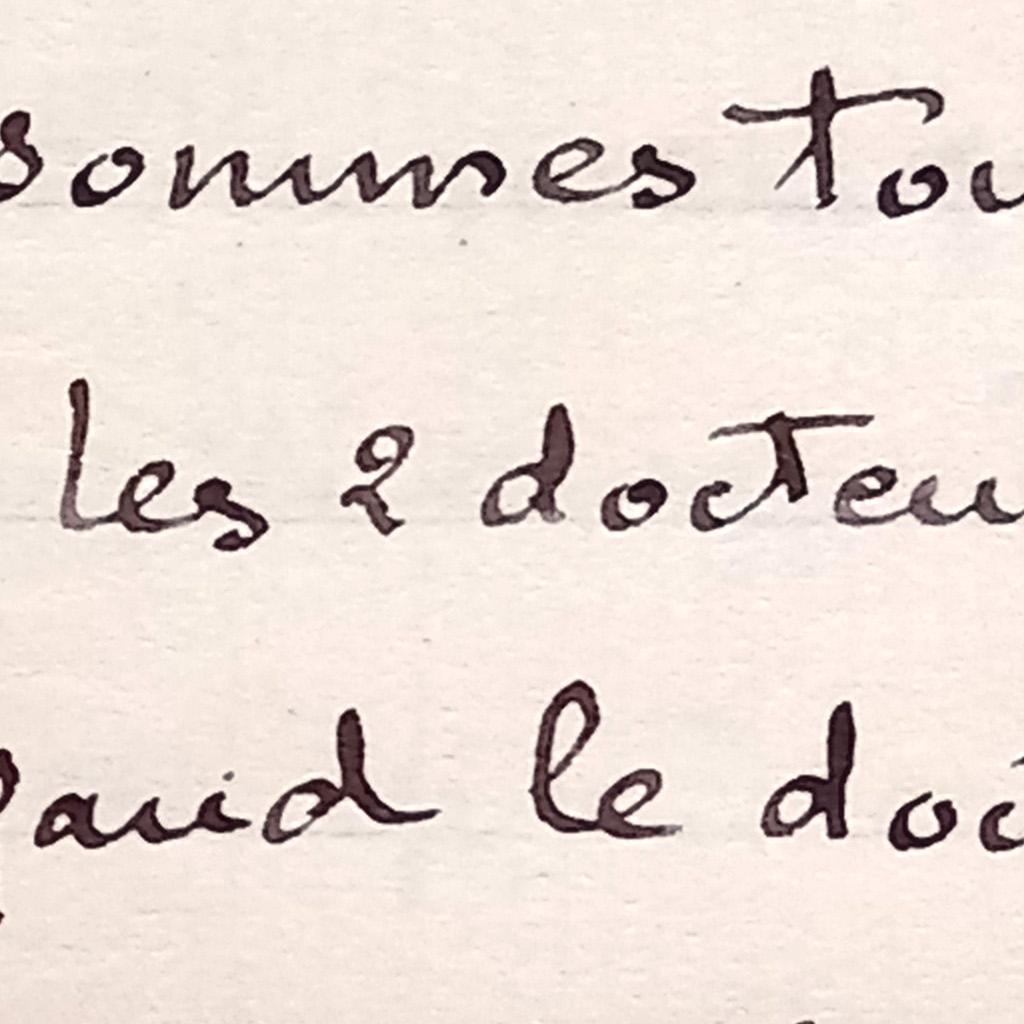 sommes tou
les 2 docteu
le doc